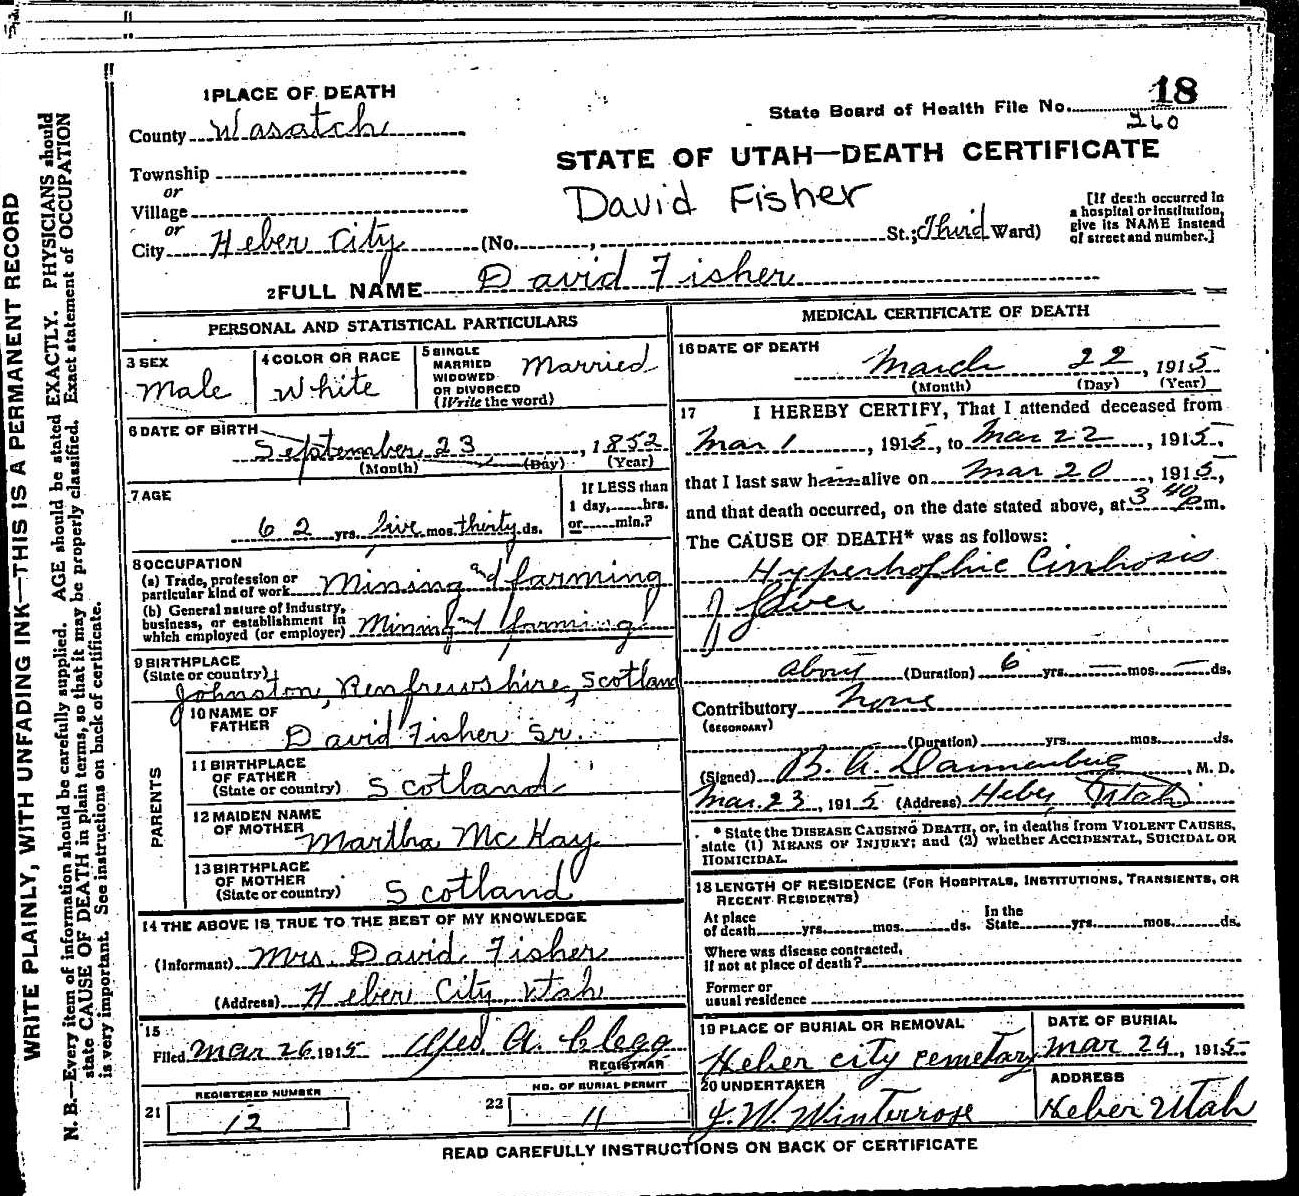 1 PLACE OF DEATH
County Wasatch
Township
or
Village
or
City Heber City (No. , St.; Third Ward)
State Board of Health File No. 18
260
STATE OF UTAH—DEATH CERTIFICATE
David Fisher
[If death occurred in
a hospital or institution,
give its NAME instead
of street and number.]
2 FULL NAME David Fisher
PERSONAL AND STATISTICAL PARTICULARS
3 SEX
Male
4 COLOR OR RACE
White
5 SINGLE
MARRIED
WIDOWED
OR DIVORCED
(Write the word)
Married
6 DATE OF BIRTH
September 23, 1852
(Month) (Day) (Year)
7 AGE
62 yrs. five mos. thirty ds.
If LESS than
1 day, hrs.
or min.?
8 OCCUPATION
(a) Trade, profession or
particular kind of work Mining and farming
(b) General nature of industry,
business, or establishment in
which employed (or employer) Mining and farming
9 BIRTHPLACE
(State or country)
Johnston, Renfrewshire, Scotland
PARENTS
10 NAME OF
FATHER David Fisher Sr.
11 BIRTHPLACE
OF FATHER
(State or country) Scotland
12 MAIDEN NAME
OF MOTHER Martha McKay
13 BIRTHPLACE
OF MOTHER
(State or country) Scotland
14 THE ABOVE IS TRUE TO THE BEST OF MY KNOWLEDGE
(Informant) Mrs. David Fisher
(Address) Heber City, Utah
15
Filed Mar 26, 1915 A. Clegg
REGISTRAR
21 REGISTERED NUMBER
12
22 NO. OF BURIAL PERMIT
11
MEDICAL CERTIFICATE OF DEATH
16 DATE OF DEATH
March 22, 1915
(Month) (Day) (Year)
17 I HEREBY CERTIFY, That I attended deceased from
Mar 1, 1915, to Mar 22, 1915,
that I last saw h alive on Mar 20, 1915,
and that death occurred, on the date stated above, at 3 40 p m.
The CAUSE OF DEATH* was as follows:
Hypertrophic Cirrhosis
of Liver
about (Duration) 6 yrs. — mos. — ds.
Contributory none
(SECONDARY)
(Duration) yrs. mos. ds.
(Signed) Dannenberg, M. D.
Mar. 23, 1915 (Address) Heber Utah
* State the DISEASE CAUSING DEATH, or, in deaths from VIOLENT CAUSES,
state (1) MEANS OF INJURY; and (2) whether ACCIDENTAL, SUICIDAL OR
HOMICIDAL.
18 LENGTH OF RESIDENCE (FOR HOSPITALS, INSTITUTIONS, TRANSIENTS, OR
RECENT RESIDENTS)
At place
of death yrs. mos. ds.
In the
State yrs. mos. ds.
Where was disease contracted,
if not at place of death?
Former or
usual residence
19 PLACE OF BURIAL OR REMOVAL
Heber city cemetary
DATE OF BURIAL
Mar 24, 1915
20 UNDERTAKER
J. W. Winterrose
ADDRESS
Heber Utah
READ CAREFULLY INSTRUCTIONS ON BACK OF CERTIFICATE
WRITE PLAINLY, WITH UNFADING INK—THIS IS A PERMANENT RECORD
N. B.—Every item of information should be carefully supplied. AGE should be stated EXACTLY. PHYSICIANS should
state CAUSE OF DEATH in plain terms, so that it may be properly classified. Exact statement of OCCUPATION
is very important. See instructions on back of certificate.